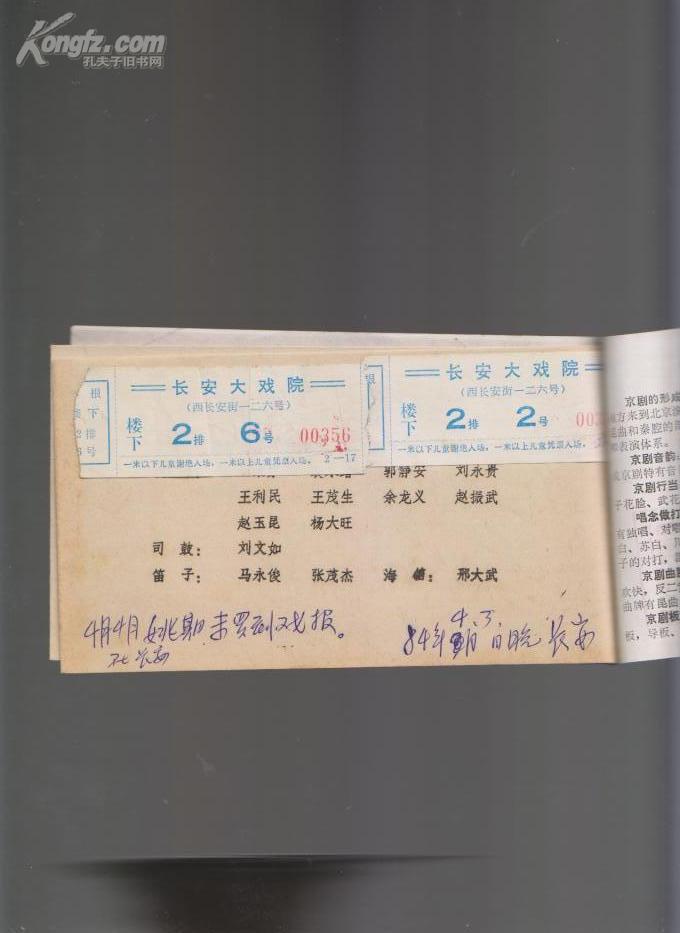 Kongfz.com
孔夫子旧书网
根
下
2排
6号
长安大戏院
(西长安街一二六号)
楼下 2排 6号 00356
一米以下儿童谢绝入场,一米以上儿童凭票入场。 2—17
根
长安大戏院
(西长安街一二六号)
楼下 2排 2号
一米以下儿童谢绝入场,一米以上儿童凭票入场。
郭静安 刘永贵
王利民 王茂生 余龙义 赵振武
赵玉昆 杨大旺
司鼓: 刘文如
笛子: 马永俊 张茂杰 海笛: 邢大武
4月4月姚期未买到戏报。
在长安
4.3.
84年 日晚 长安
京剧的形成
方来到北京演
昆曲和秦腔的
表演体系。
京剧音韵
京剧特有音
京剧行当
子花脸、武花
唱念做打
有独唱、对唱
白、苏白、
子的对打,
京剧曲
欢快,反二
曲牌有昆曲
京剧板
板,导板、